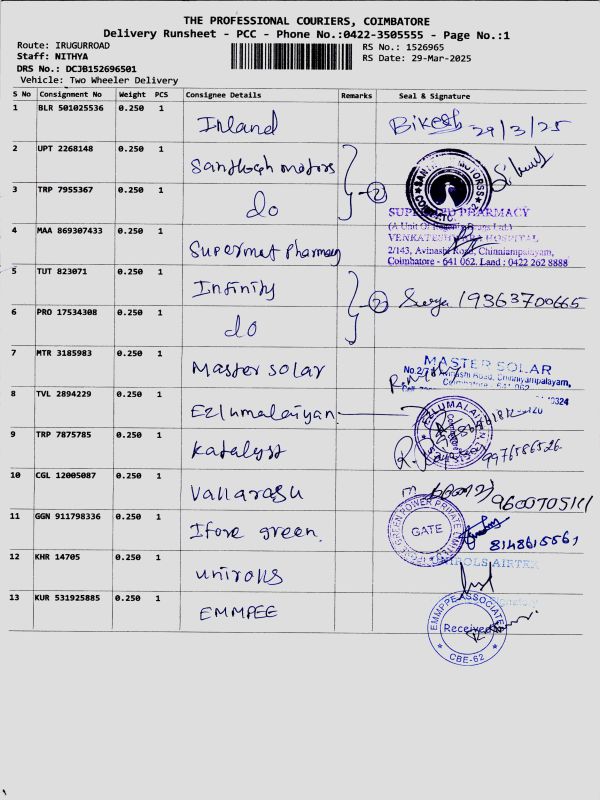 THE PROFESSIONAL COURIERS, COIMBATORE
Delivery Runsheet - PCC - Phone No.:0422-3505555 - Page No.:1
Route: IRUGURROAD
RS No.: 1526965
Staff: NITHYA
RS Date: 29-Mar-2025
DRS No.: DCJB152696501
Vehicle: Two Wheeler Delivery
S No Consignment No Weight PCS Consignee Details Remarks Seal & Signature
1 BLR 501025536 0.250 1 Inland Bikesh 29/3/25
2 UPT 2268148 0.250 1 Santhosh motors 2
3 TRP 7955367 0.250 1 do
SUPERMED PHARMACY
(A Unit Of
4 MAA 869307433 0.250 1 Supermet pharmacy
VENKATESHWARA HOSPITAL
2/143, Avinashi Road, Chinniampalayam,
Coimbatore - 641 062. Land : 0422 262 8888
5 TUT 823071 0.250 1 Infinity 2 Surya 19363700665
6 PRO 17534308 0.250 1 do
7 MTR 3185983 0.250 1 Master solar
MASTER SOLAR
Avinashi Road, Chinniyampalayam,
8 TVL 2894229 0.250 1 Ezlumalaiyan
9 TRP 7875785 0.250 1 Katalyst 9976586526
10 CGL 12005087 0.250 1 Vallarasu 9600705111
11 GGN 911798336 0.250 1 Ifore green GATE 8148615561
12 KHR 14705 0.250 1 unirolls
UNIROLS AIRTEX
13 KUR 531925885 0.250 1 EMMPEE
EMMPPE ASSOCIATES
Received
CBE-62